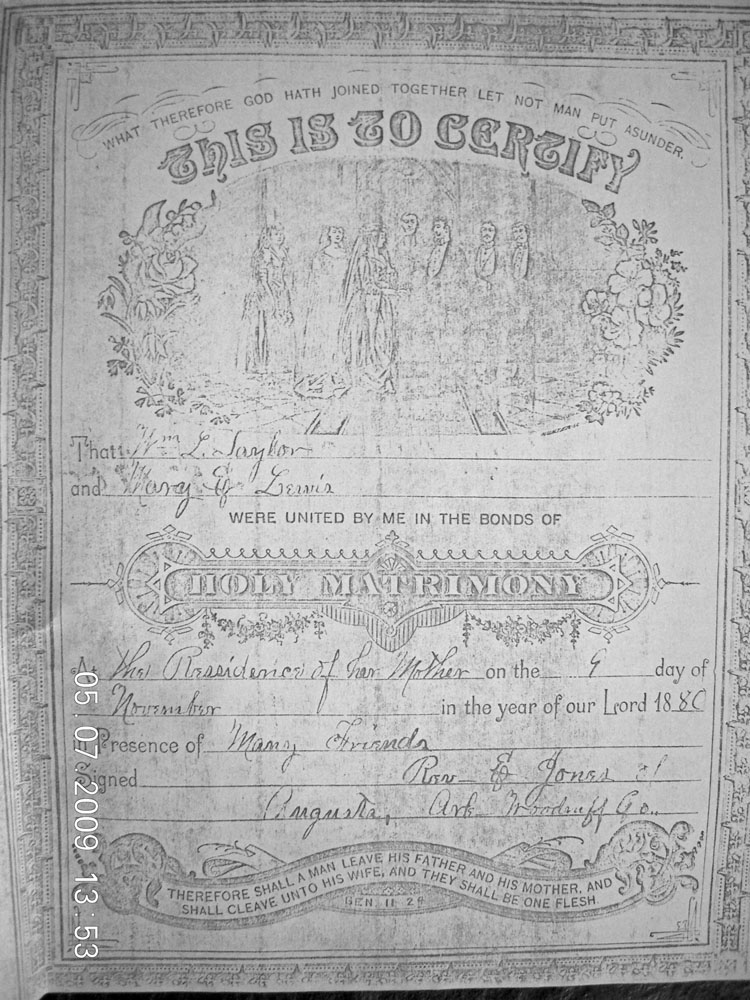 WHAT THEREFORE GOD HATH JOINED TOGETHER LET NOT MAN PUT ASUNDER.
THIS IS TO CERTIFY
That Wm L. Taylor
and Mary E Lewis
WERE UNITED BY ME IN THE BONDS OF
HOLY MATRIMONY
At the Ressidence of her Mother on the 9 day of
November in the year of our Lord 1880
In Presence of Many Friends
Signed Rev E Jones of
Augusta, Ark Woodruff Co.
THEREFORE SHALL A MAN LEAVE HIS FATHER AND HIS MOTHER, AND
SHALL CLEAVE UNTO HIS WIFE, AND THEY SHALL BE ONE FLESH.
GEN. II 24
05.07.2009 13:53